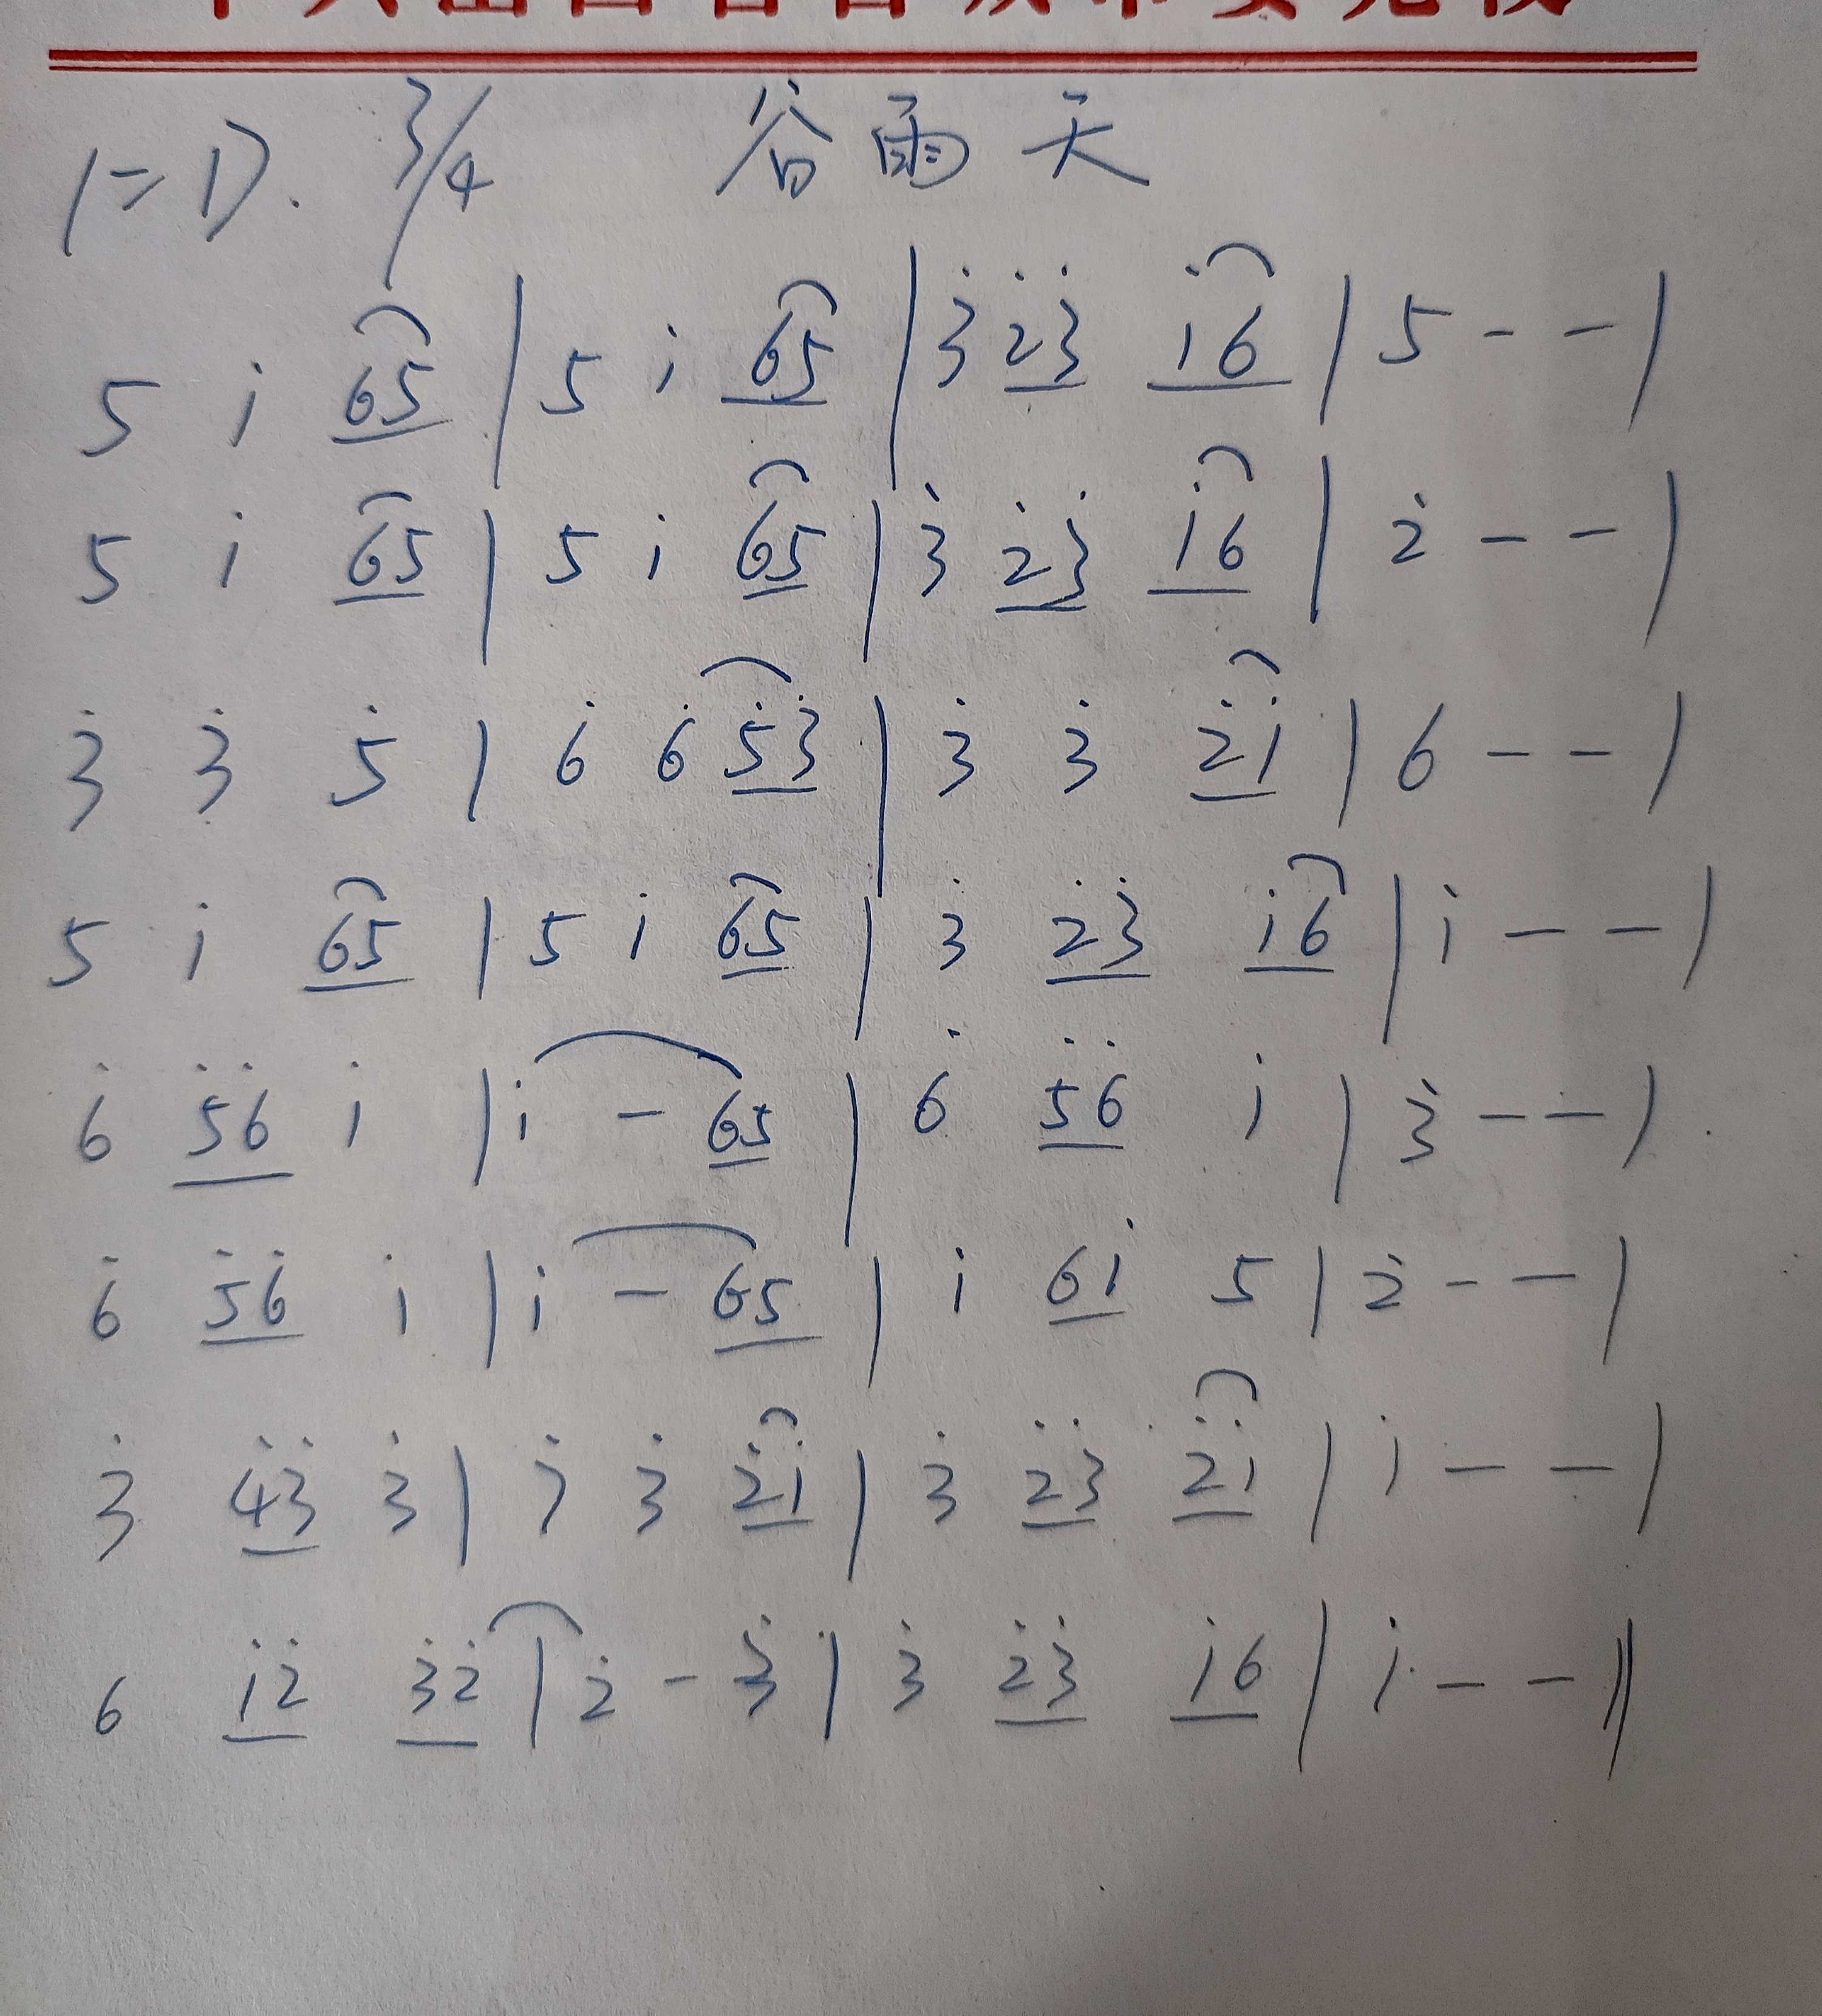 1=D. 3/4 谷雨天
5 i 65 | 5 i 65 | 3̇ 2̇3̇ i6 | 5 - - |
5 i 65 | 5 i 65 | 3̇ 2̇3̇ i6 | 2̇ - - |
3̇ 3̇ 5̇ | 6̇ 6̇ 5̇3̇ | 3̇ 3̇ 2̇i | 6 - - |
5 i 65 | 5 i 65 | 3̇ 2̇3̇ i6 | i - - |
6̇ 5̇6̇ i | i - 65 | 6̇ 5̇6̇ i | 3̇ - - |
6̇ 5̇6̇ i | i - 65 | i 6i 5 | 2̇ - - |
3̇ 4̇3̇ 3̇ | 3̇ 3̇ 2̇i | 3̇ 2̇3̇ 2̇i | i - - |
6 i2̇ 3̇2̇ | 2̇ - 3̇ | 3̇ 2̇3̇ i6 | i - - ‖